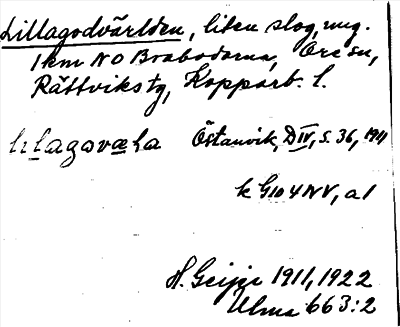 Lillagodvärlden, liten slog, ung.
1 km NO Brabodarna, Ore sn,
Rättviks tg, Kopparb. l.
Östanvik, DIV, s. 36, 1911
k G104NV, a1
H. Geijer 1911, 1922
Ulma 663:2